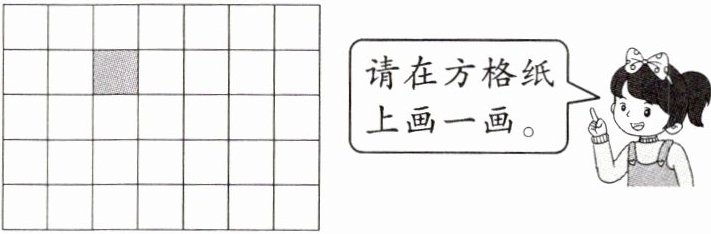 请在方格纸
上画一画。